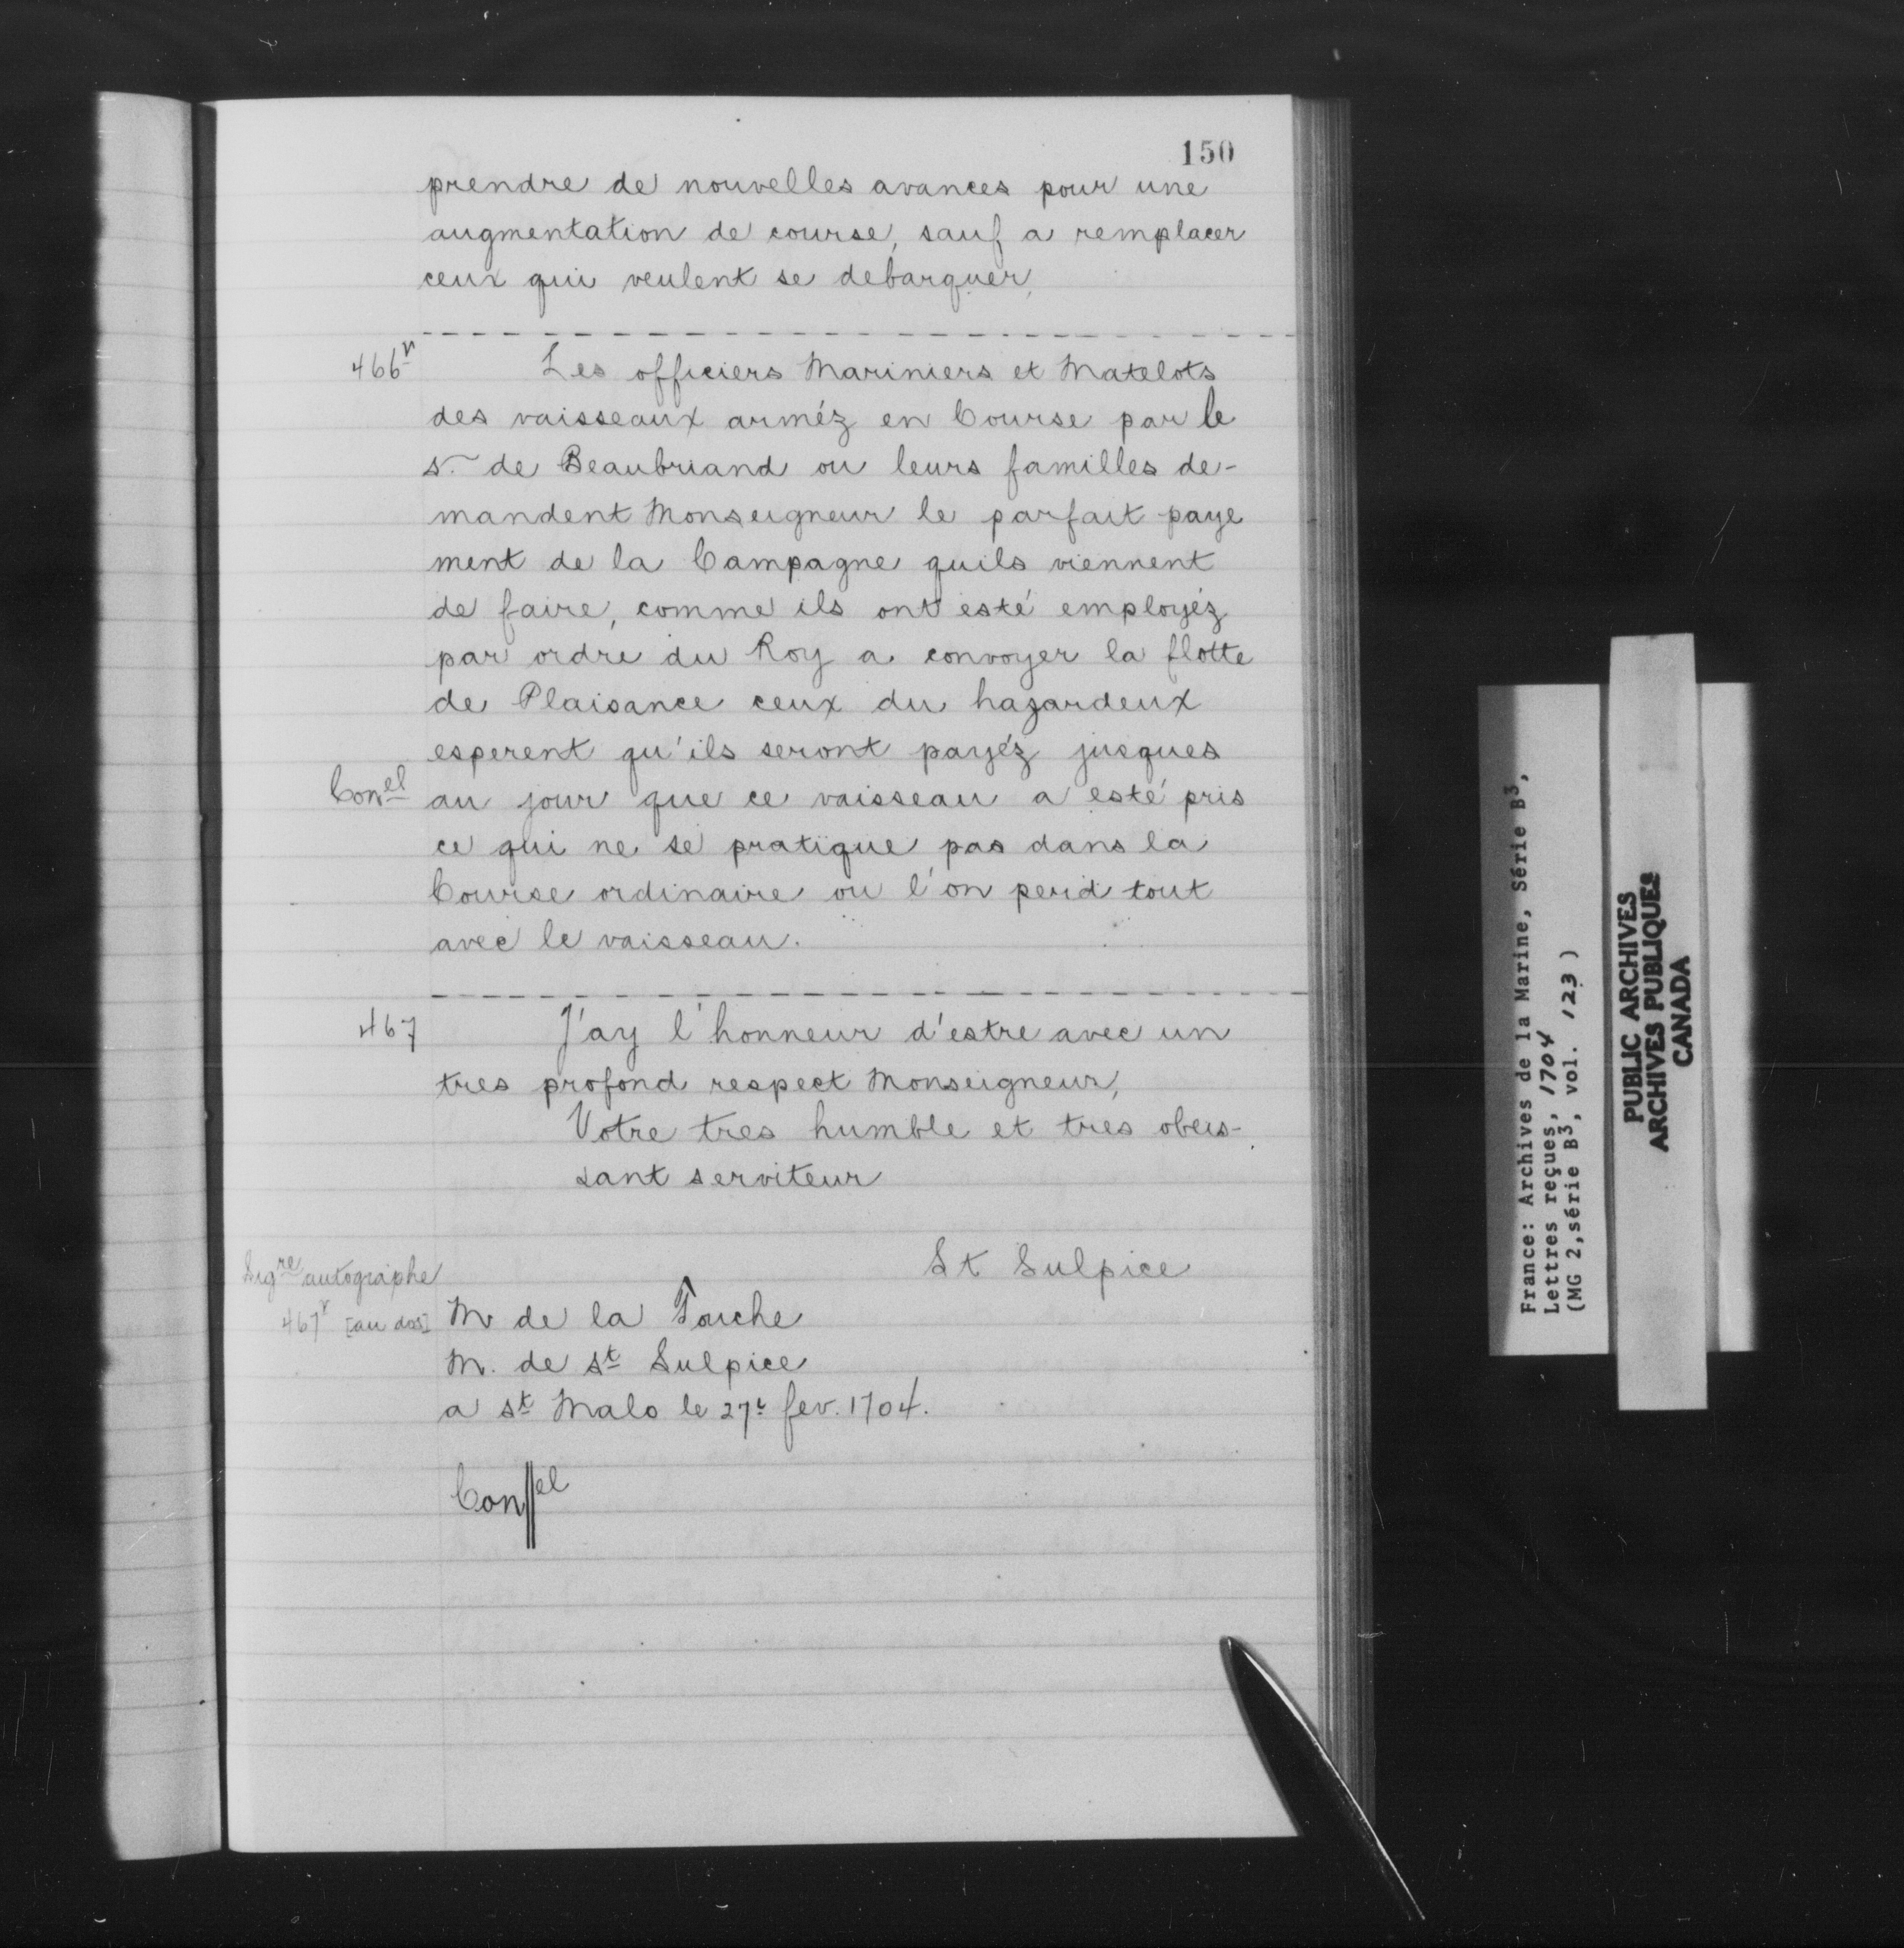 150
prendre de nouvelles avances pour une
augmentation de course, sauf a remplacer
ceux qui veulent se debarquer,
466v
Les officiers Mariniers et Matelots
des vaisseaux arméz en Course par le
s. de Beaubriand ou leurs familles de-
mandent Monseigneur le parfait paye
ment de la Campagne quils viennent
de faire, comme ils ont esté employéz
par ordre du Roy a convoyer la flotte
de Plaisance ceux du hazardeux
esperent qu'ils seront payéz jusques
Conel
au jour que ce vaisseau a esté pris
ce qui ne se pratique pas dans la
Course ordinaire ou l'on perd tout
avec le vaisseau.
467
J'ay l'honneur d'estre avec un
tres profond respect Monseigneur,
Votre tres humble et tres obeis-
sant serviteur
St Sulpice
Sigre autographe
467v [au dos]
Mr de la Touche
M. de st Sulpice
a st Malo le 27e fev. 1704.
Con||el
France: Archives de la Marine, Série B3,
Lettres reçues, 1704
(MG 2, série B3, vol. 123 )
PUBLIC ARCHIVES
ARCHIVES PUBLIQUES
CANADA